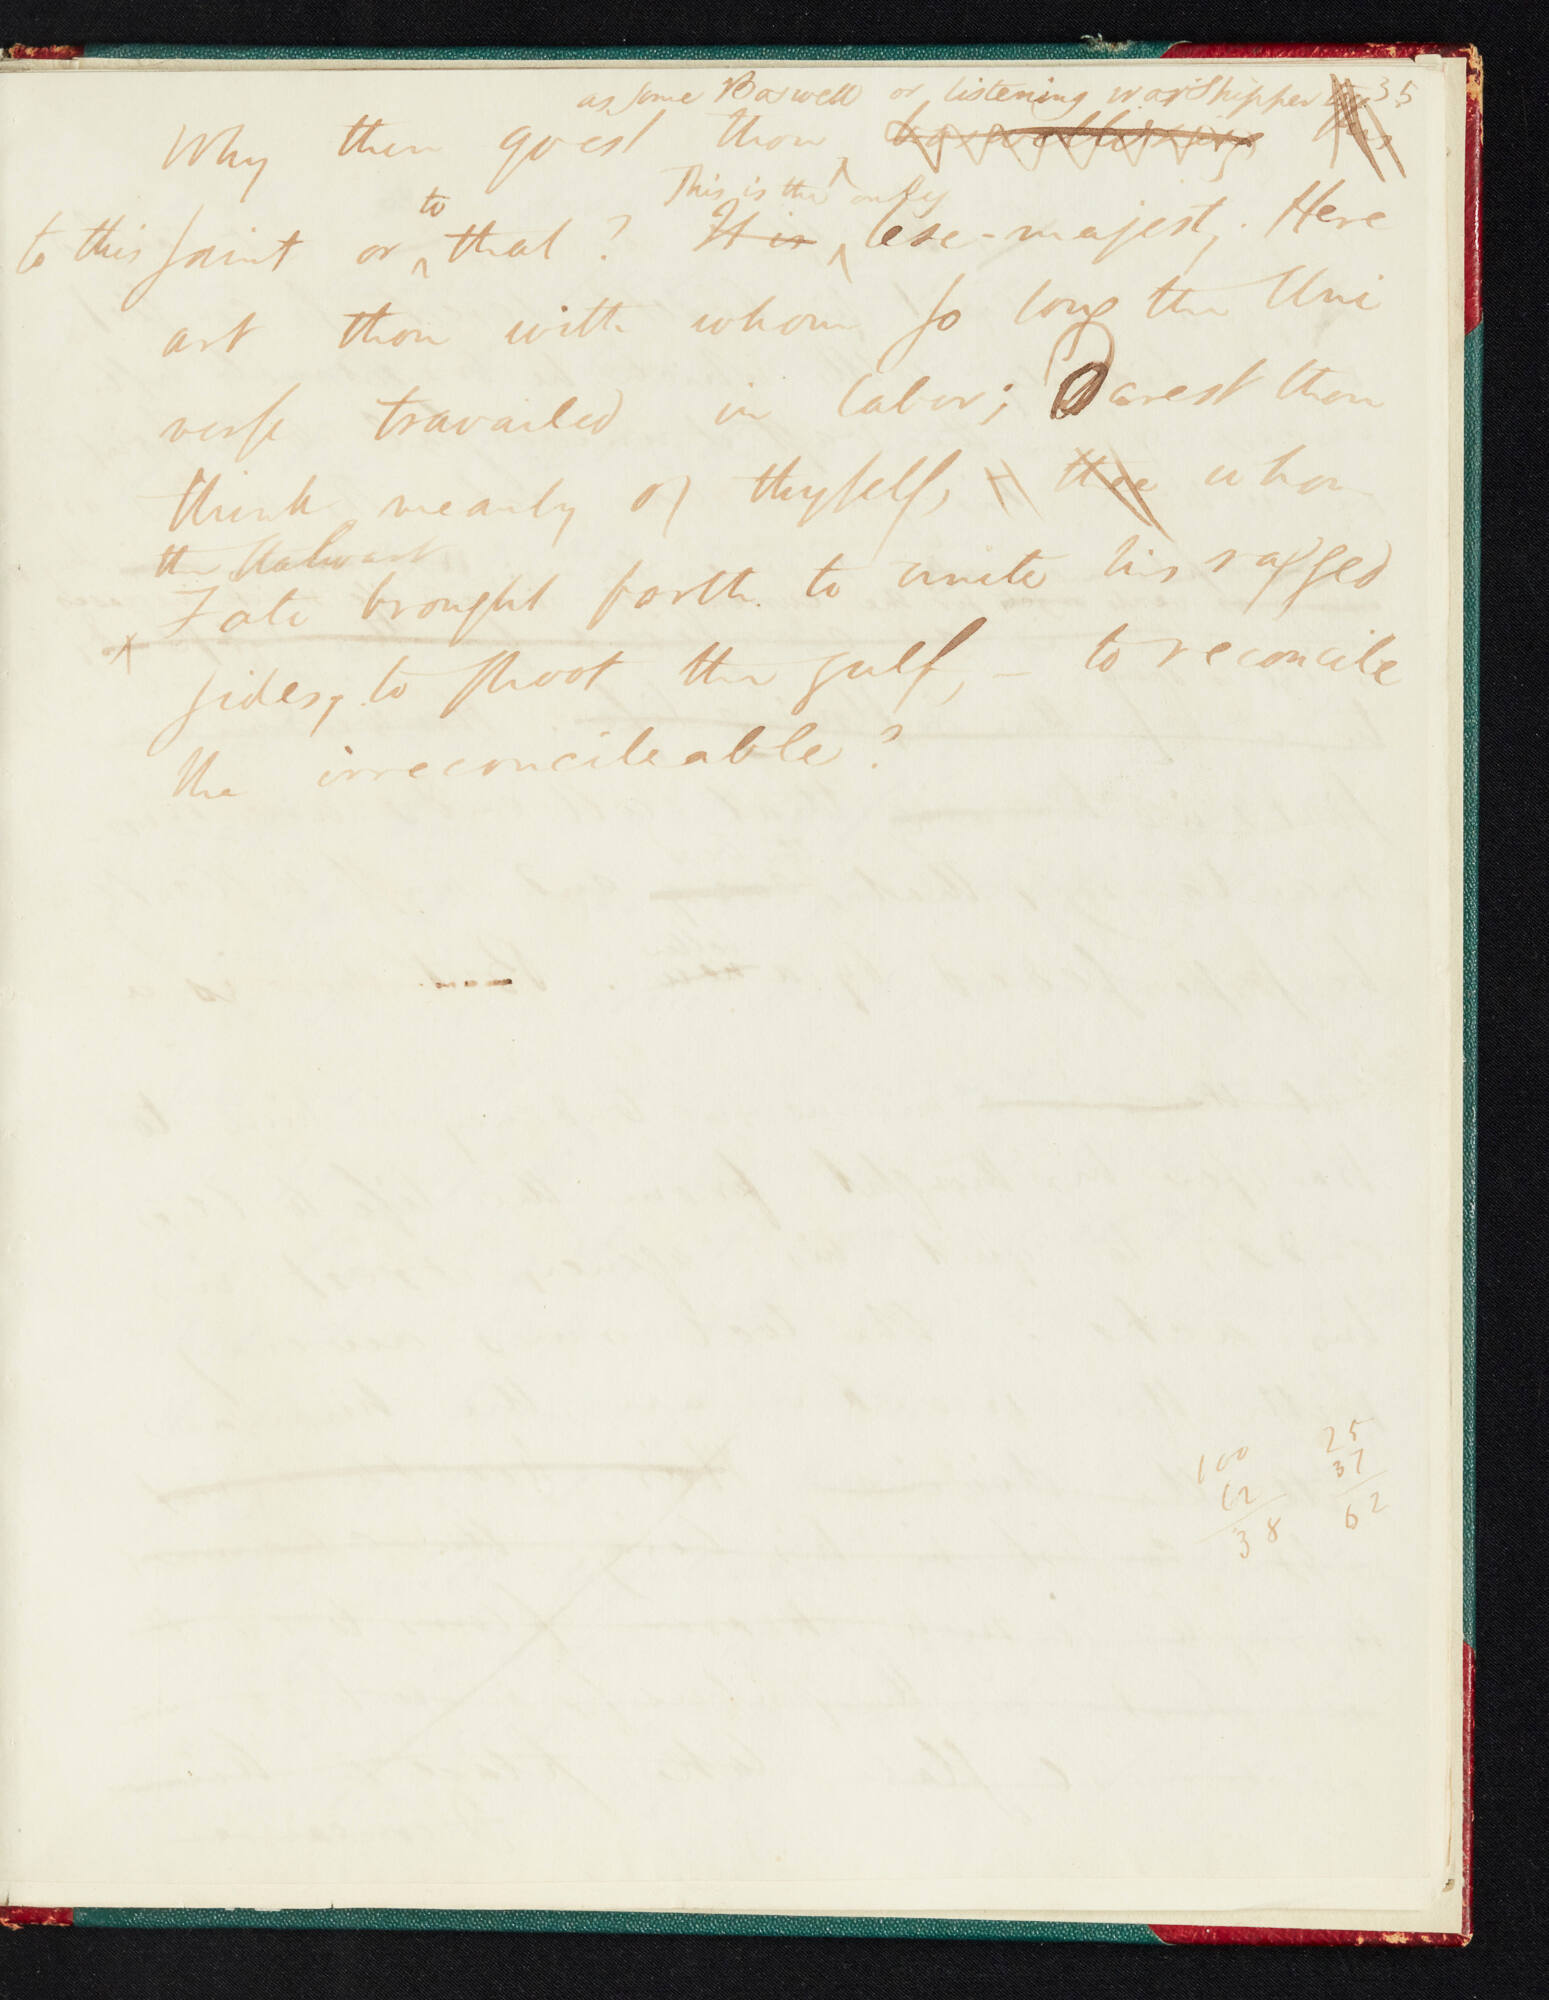 as some Boswell or listening worshipper 35
Why then goest thou boswellizing this
to this Saint or to that? This is the only
It is lese-majesty. Here
art thou with whom so long the Uni
verse travailed in labor; Darest thou
think meanly of thyself, thee whom
the stalwart
Fate brought forth to unite his ragged
sides, to shoot the gulf, – to reconcile
the irreconcileable?
100 25
62 37
38 62